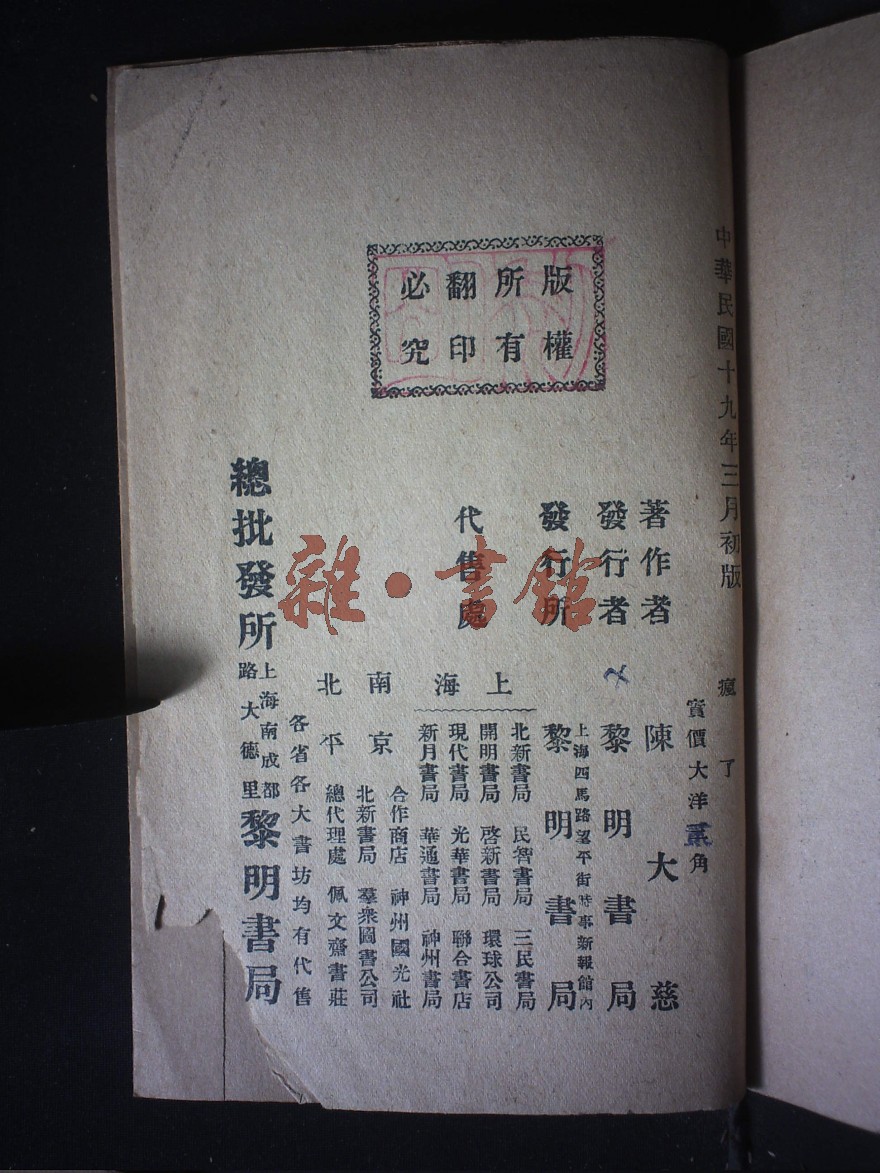 中華民國十九年三月初版
瘋了
實價大洋貳角
著作者 陳大慈
發行者 黎明書局
發行所 上海四馬路望平街時事新報館內 黎明書局
代售處
上海
北新書局 民智書局 三民書局
開明書局 啓新書局 環球公司
現代書局 光華書局 聯合書店
新月書局 華通書局 神州書局
南京
合作商店 神州國光社
北新書局 羣衆圖書公司
北平
總代理處 佩文齋書莊
各省各大書坊均有代售
總批發所 上海南成都路大德里 黎明書局
版權所有
翻印必究
雜·書館